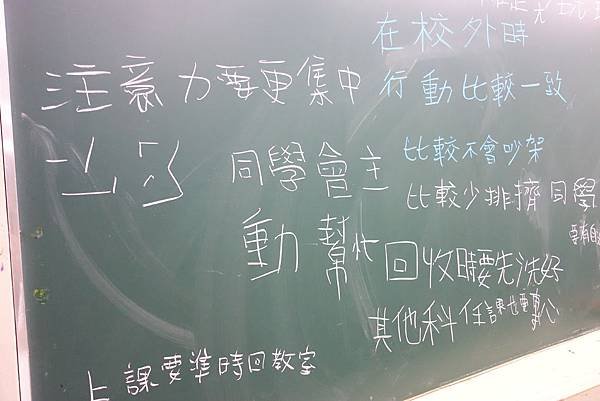 注意力要更集中
一點
同學會主
動幫忙
上課要準時回教室
在校外時
行動比較一致
比較不會吵架
比較少排擠同學
要有
回收時要先洗好
其他科任課也要專心